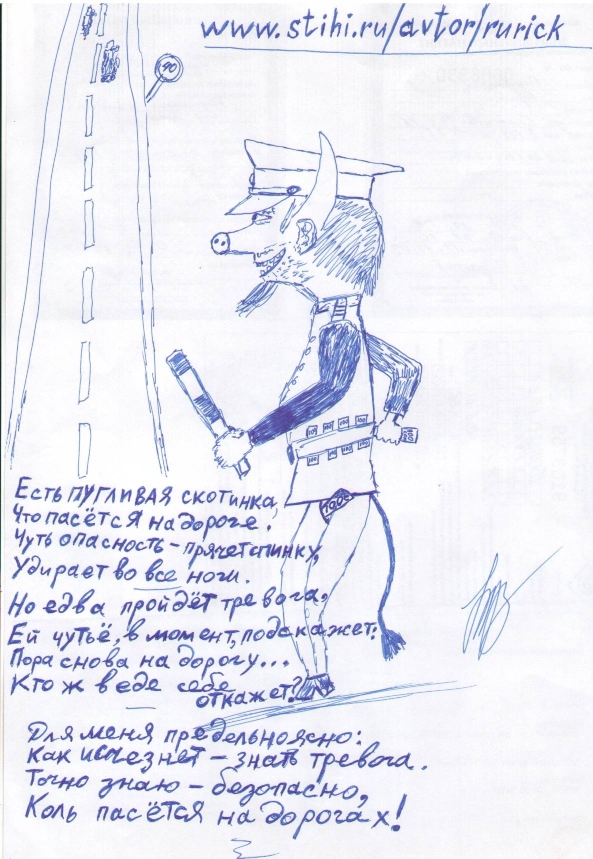 www.stihi.ru/avtor/rurick
40
Есть ПУГЛИВАЯ скотинка,
Что пасётся на дороге.
Чуть опасность - прячет спинку,
Удирает во все ноги.
Но едва пройдёт тревога,
Ей чутьё, в момент, подскажет:
Пора снова на дорогу...
Кто ж в еде себе
откажет?
Для меня предельно ясно:
Как исчезнет - знать тревога.
Точно знаю - безопасно,
Коль пасётся на дорогах!